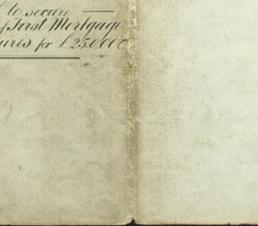 to secure
of First Mortgage
ures for £25,000